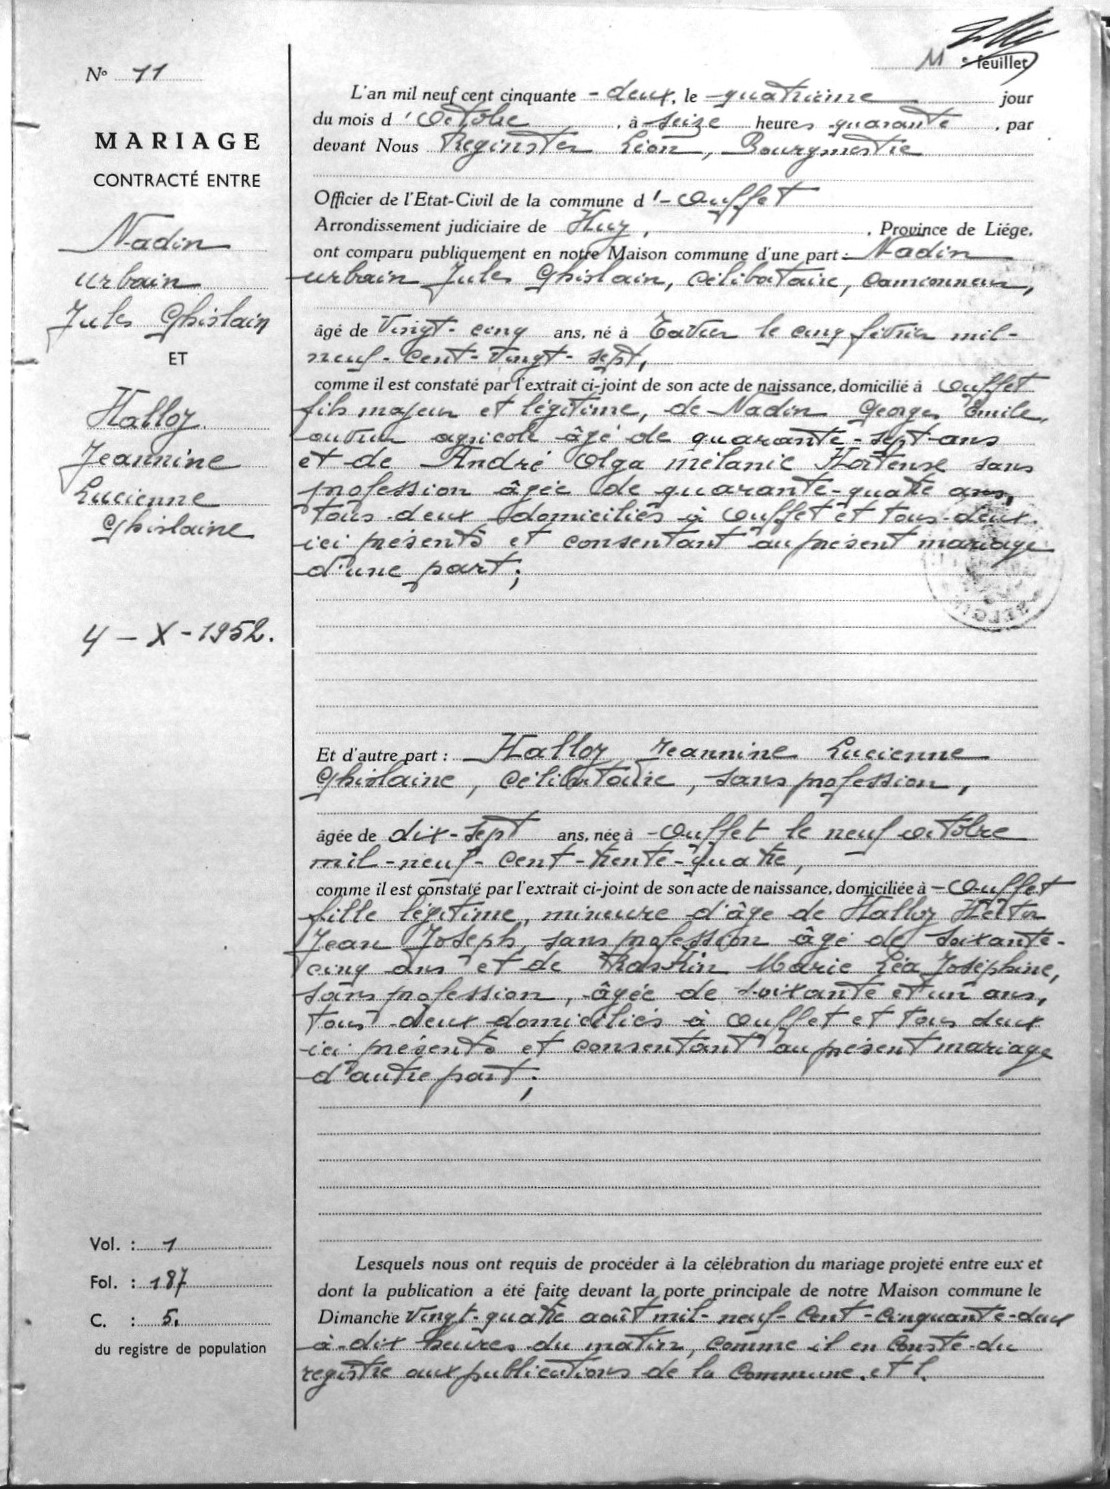 M e feuillet
N° 11
MARIAGE
CONTRACTÉ ENTRE
Nadin
Urbain
Jules Ghislain
ET
Halloy
Jeannine
Lucienne
Ghislaine
4 - X - 1952.
Vol. : 1
Fol. : 187
C. : 5.
du registre de population
L'an mil neuf cent cinquante - deux, le quatrième jour
du mois d'Octobre, à seize heures quarante, par
devant Nous Reginster Léon, Bourgmestre
Officier de l'Etat-Civil de la commune d'-Ouffet
Arrondissement judiciaire de Huy, , Province de Liége,
ont comparu publiquement en notre Maison commune d'une part : Nadin
Urbain Jules Ghislain, célibataire, camionneur,
âgé de Vingt-cinq ans, né à Tavier le cinq février mil-
neuf-cent-vingt-sept,
comme il est constaté par l'extrait ci-joint de son acte de naissance, domicilié à Ouffet
fils majeur et légitime, de Nadin Georges Emile,
ouvrier agricole âgé de quarante-sept ans
et de André Olga Mélanie Hortense sans
profession âgée de quarante-quatre ans,
tous deux domiciliés à Ouffet et tous deux
ici présents et consentant au présent mariage
d'une part ;
Et d'autre part : Halloy Jeannine Lucienne
Ghislaine, célibataire, sans profession,
âgée de dix-sept ans, née à -Ouffet le neuf octobre
mil-neuf-cent-trente-quatre,
comme il est constaté par l'extrait ci-joint de son acte de naissance, domiciliée à -Ouffet
fille légitime, mineure d'âge de Halloy Hector
Jean Joseph, sans profession âgé de soixante-
cinq ans et de Marie Léa Joséphine,
sans profession, âgée de soixante et un ans,
tous deux domiciliés à Ouffet et tous deux
ici présents et consentant au présent mariage
d'autre part ;
Lesquels nous ont requis de procéder à la célébration du mariage projeté entre eux et
dont la publication a été faite devant la porte principale de notre Maison commune le
Dimanche vingt-quatre août mil-neuf-cent-cinquante-deux
à dix heures du matin, comme il en conste du
registre aux publications de la Commune. et l.